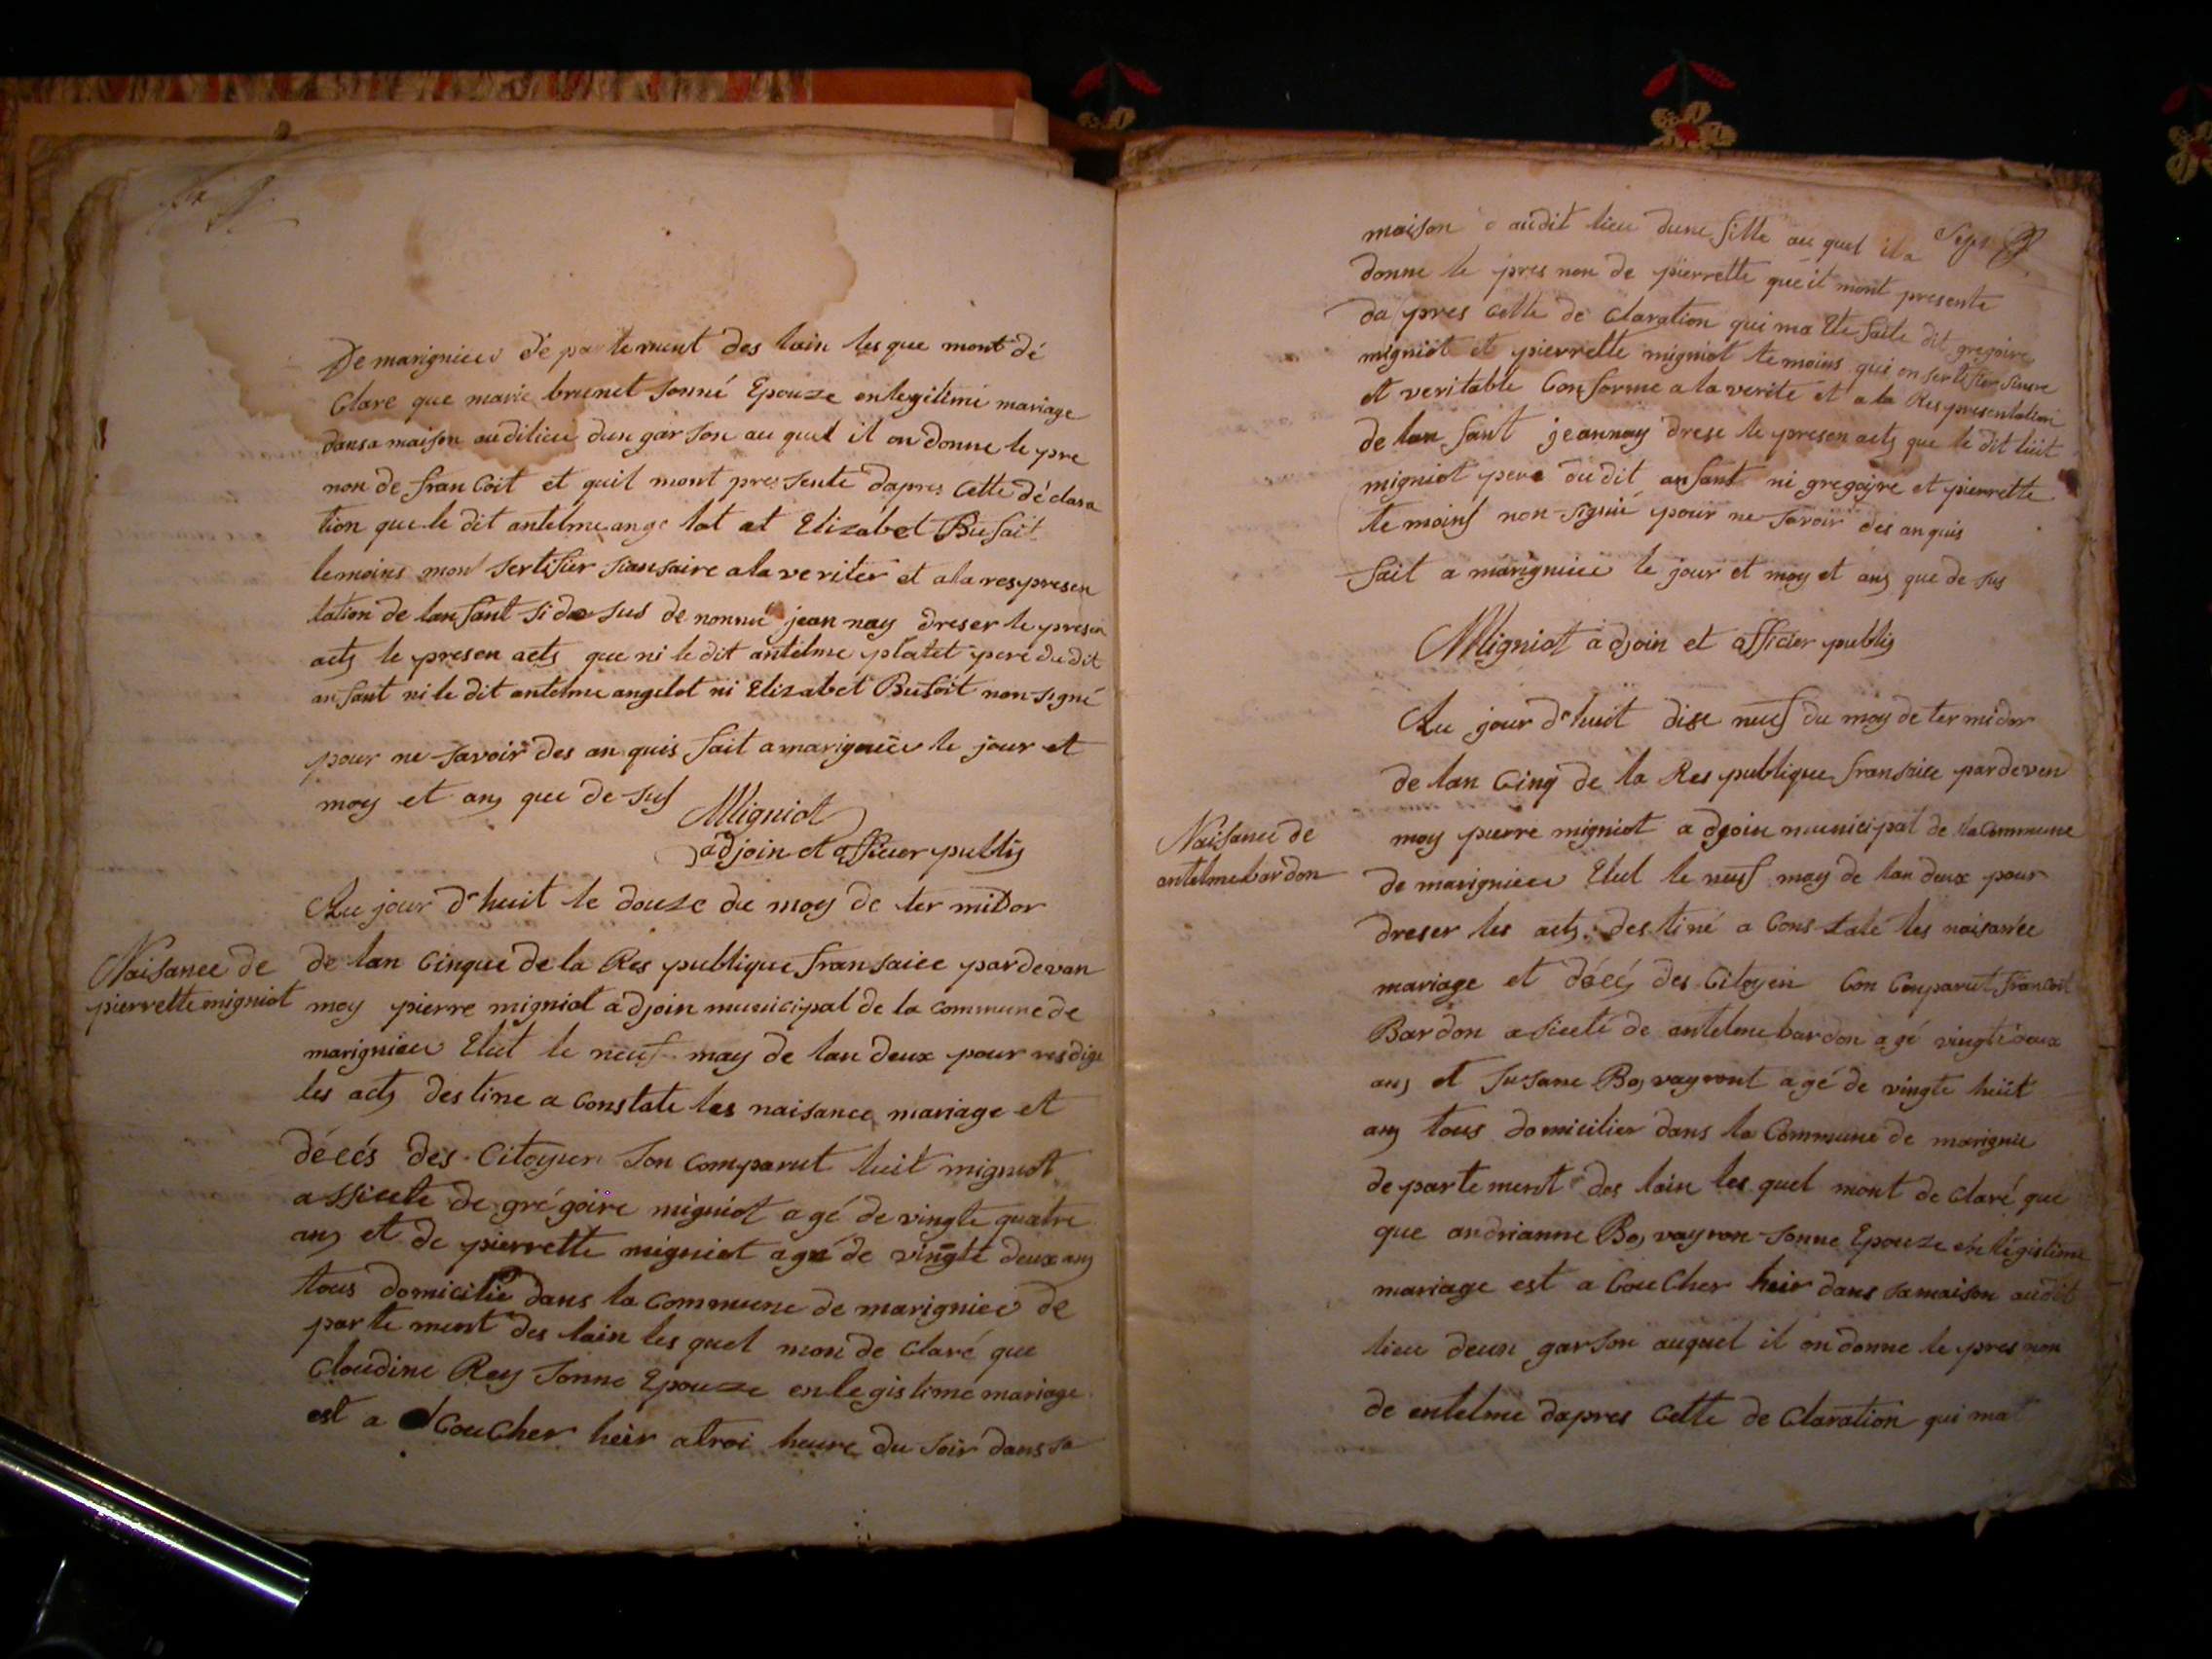 De marignieu dé partement des lain les que mont dé
Clare que marie brunet sonné Epouze en legitime mariage
dansa maison audilieu dun garson au quel il on donne le pre
non de francoit et quil mont pres sente dapres cette déclara
tion que le dit antelme ange lot et Elizabet Bufait
temoins mon sertifier sian saire a la veriter et a la respresen
tation de lan fant si de sus de nonmé jean nay dreser le presen
acts le presen acts que ni le dit antelme platet pere du dit
an fant ni le dit antelme angelot ni Elizabet Bufait non signé
pour ne savoir des an quis fait a marignieu le jour et
moy et ans que de sus
Migniot
adjoin et afficier publis
Au jour d'huit le douze du moy de ter midor
Naisance de
pierrette migniot
de lan Cinque de la Res publique fransaice pardevan
moy pierre migniot adjoin municipal de la commune de
marignieu Elut le neuf may de lan deux pour resdige
les acts destine a Constate les naisance mariage et
décés des Citoyen son comparut luit migniot
assicete de grégoire migniot agé de vingte quatre
ans et de pierrette migniot agé de vingte deux ans
tous domicilie dans la commune de marignieu de
parte ment des lain les quel mon de Claré que
Cloudine Rey sonne Epouze en legistime mariage
est a Coucher heir atroi heure du soir dans sa
Sept
maison audit lieu dune fille au quel il a
donne le pres non de pierrette que il mont presente
da pres cette de Claration qui ma Ete faite dit gregoire
migniot et pierrette migniot temoins qui on sertifier sinsere
et veritable Conforme a la verite et a la Res presentation
de lan fant jeannay drese le presen acts que le dit luit
migniot pere du dit anfant ni gregoyre et pierrette
te moins non signié pour ne savoir des an quis
fait a marignieu le jour et moy et ans que de sus
Migniot adjoin et afficier publis
Au jour d'huit dise neuf du moy de ter midor
de lan Cinq de la Res publique fransaice pardeven
Naisance de
antelme bardon
moy pierre migniot a djoin municipal de la Commune
de marignieu Elut le neuf may de lan deux pour
dreser les acts destiné a Cons taté les naisance
mariage et décés des Citoyen Con Comparut francoit
Bardon asiceté de antelme bardon agé vingte deux
ans et Susane Bovayront agé de vingte huit
ans tous domicilier dans la Commune de marignie
de parte ment des lain les quel mont de Claré que
que andrianne Bovayron sonne Epouze en légistime
mariage est a Coucher heir dans sa maison au dit
lieu deun garson auquel il on donne le pres non
de entelme dapres Cette de Claration qui mat